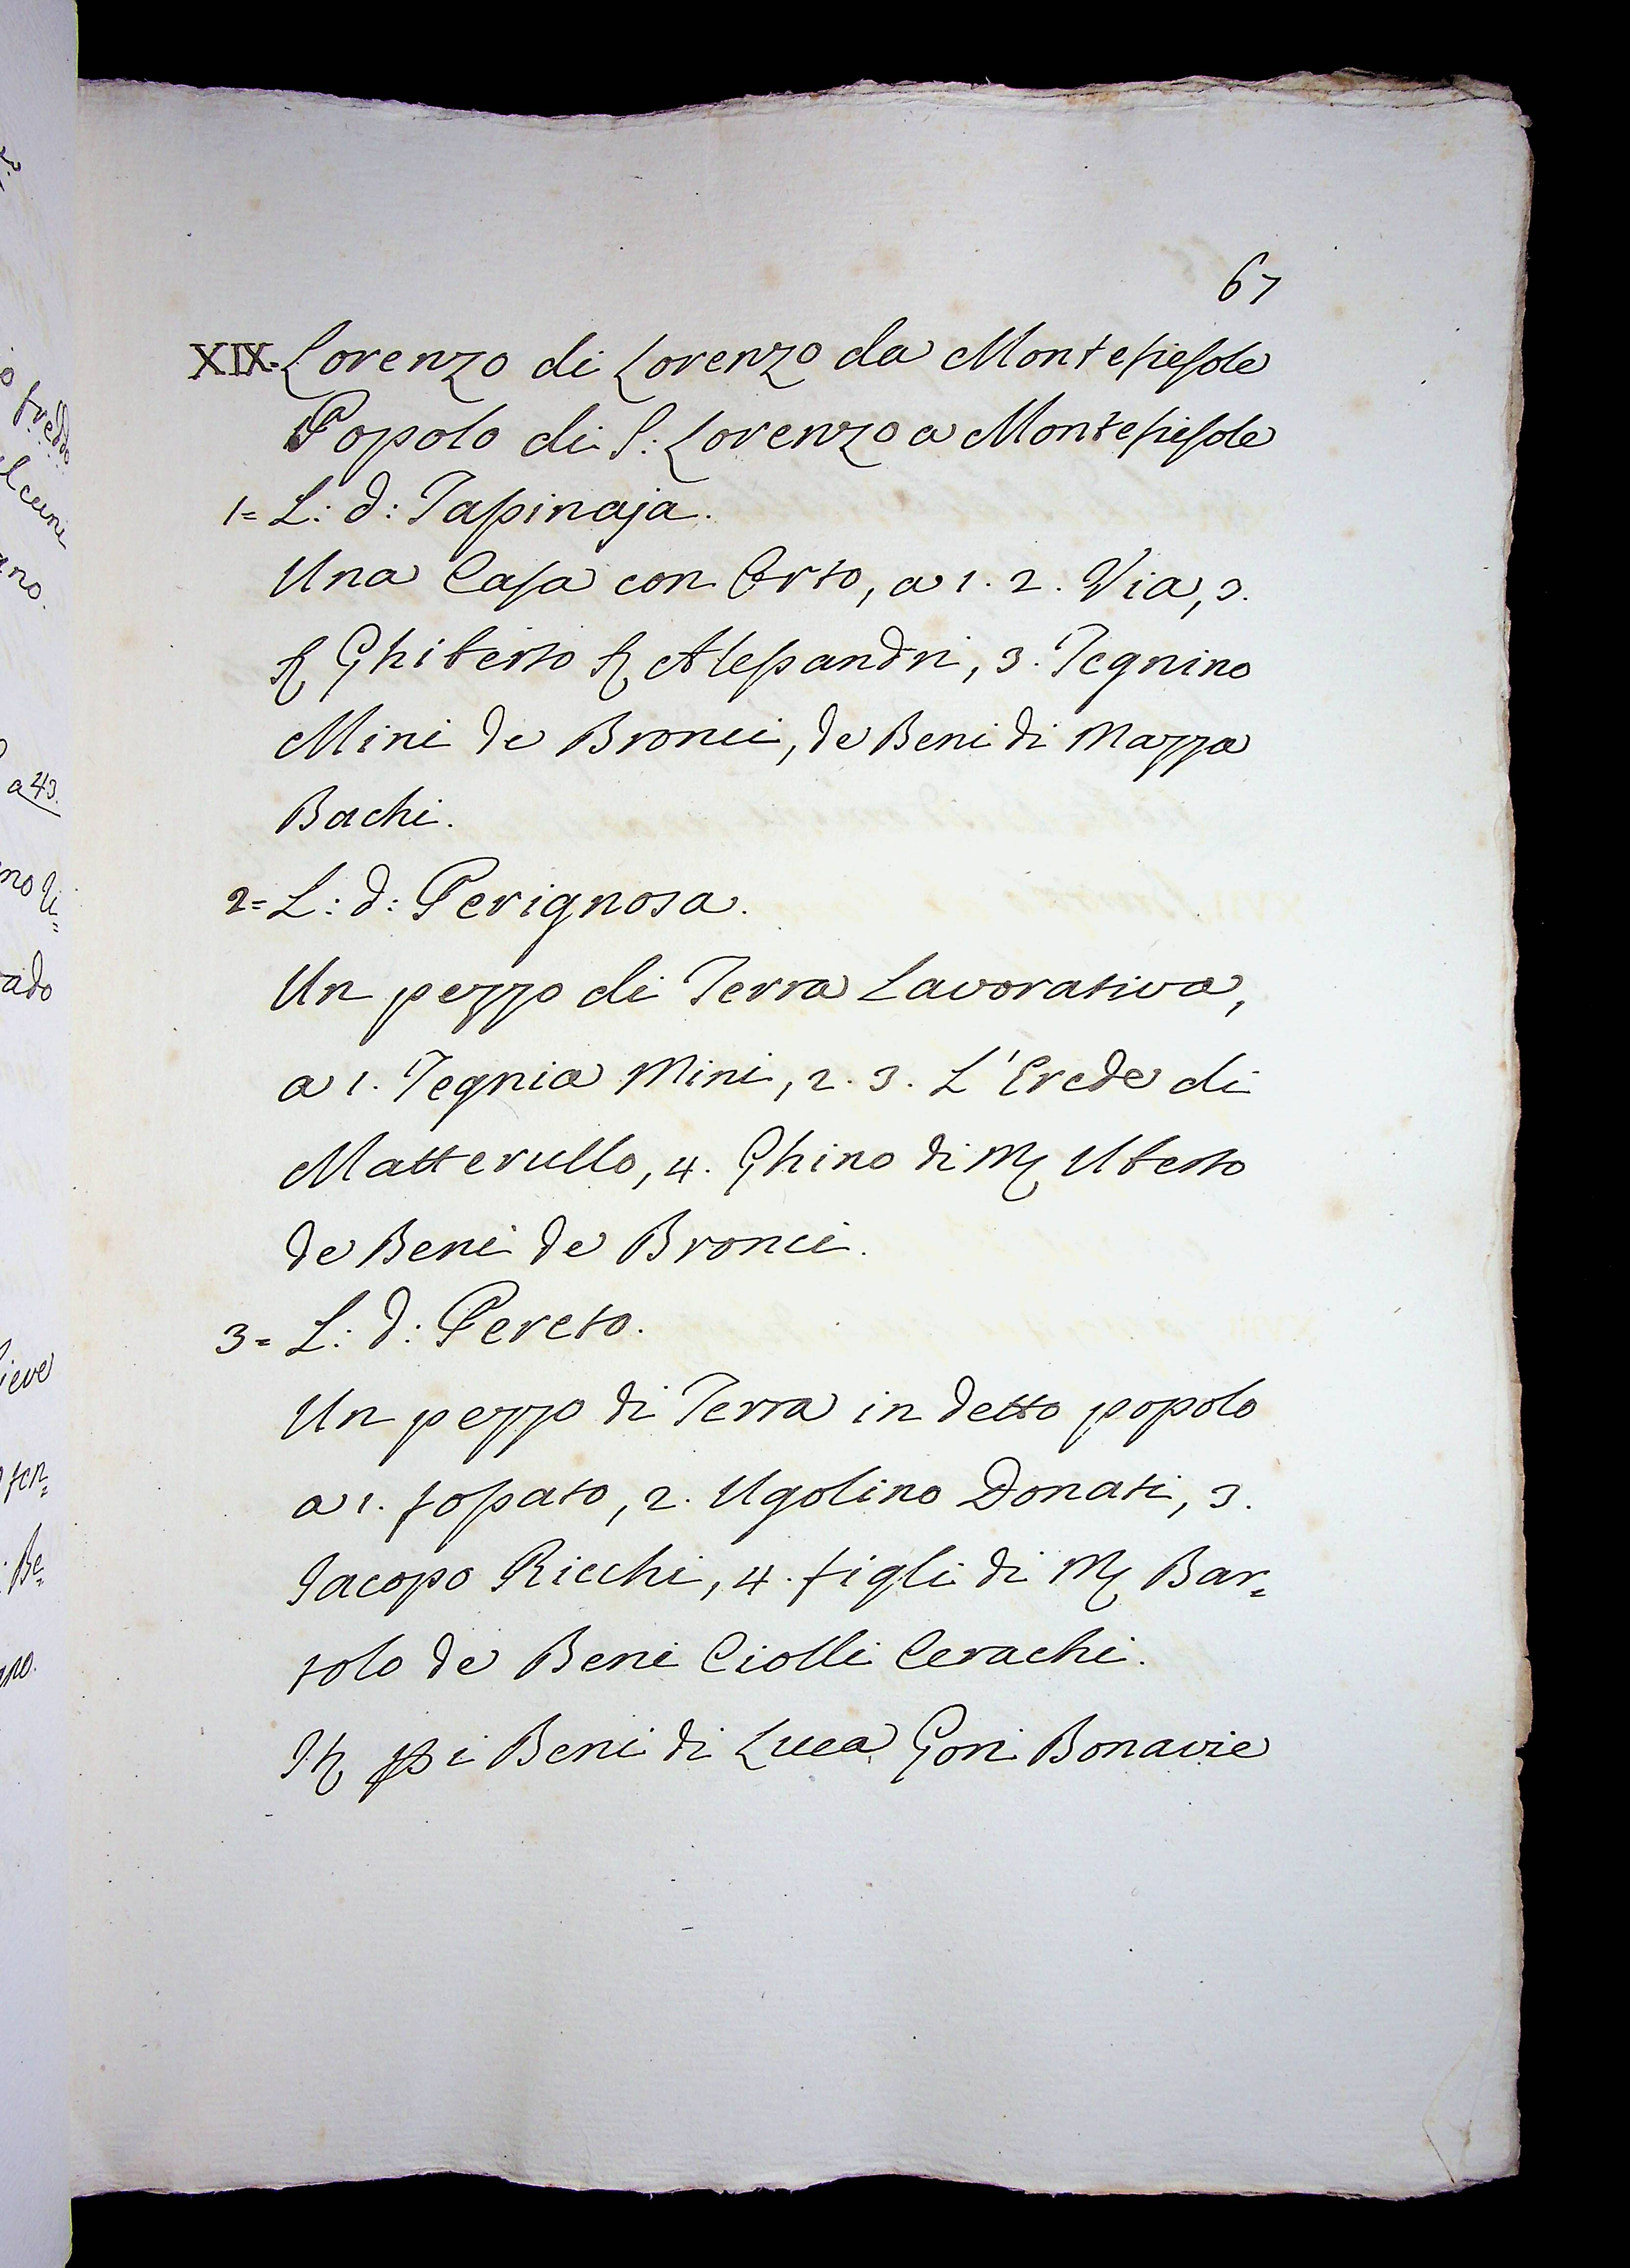 67
XIX. Lorenzo di Lorenzo da Montefiesole
Popolo di S: Lorenzo a Montefiesole
1= L: d: Tassinaja.
Una Casa con Orto, a 1. 2. Via, 3.
Ghiberto Alessandri, 3. Tegnino
Mini de Bronci, de Beni di Mazza
Bachi.
2= L: d: Perignosa.
Un pezzo di Terra Lavorativa,
a 1. Tegnia Mini, 2. 3. L'Erede di
Matterullo, 4. Ghino di M Uberto
de Beni de Bronci.
3= L: d: Pereto.
Un pezzo di Terra in detto popolo
a 1. fossato, 2. Ugolino Donati, 3.
Jacopo Ricchi, 4. figli di M Bar=
tolo de Beni Ciolli Cerachi.
Beni di Luca Gori Bonavie
a 43.
ado